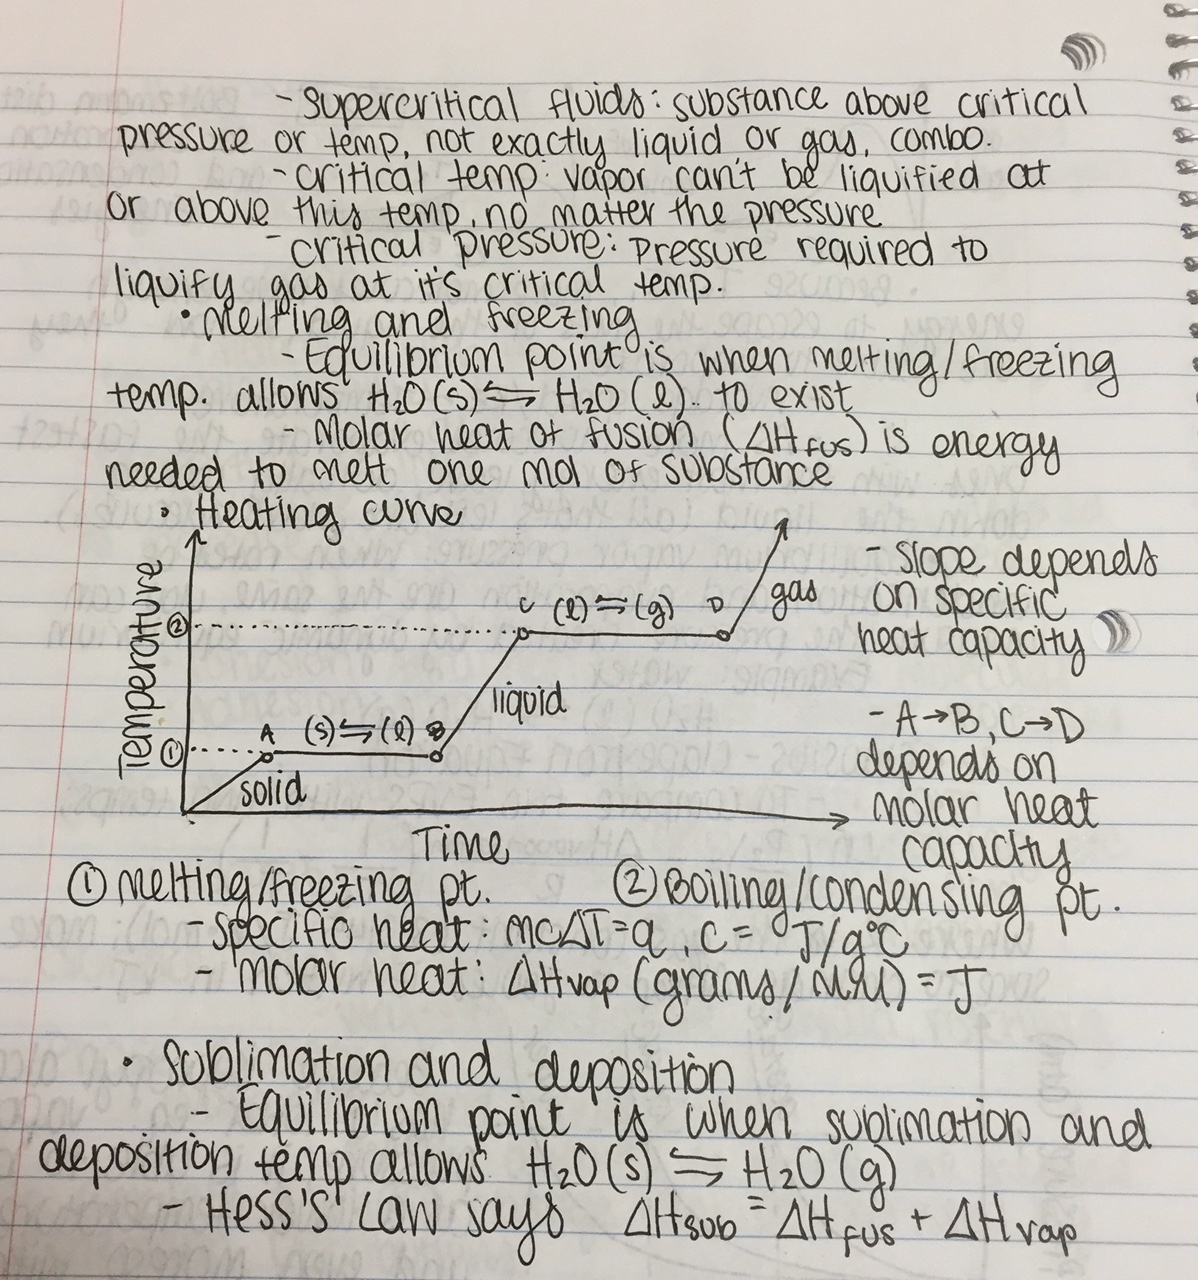 - Supercritical fluids: substance above critical
pressure or temp, not exactly liquid or gas, combo.
- critical temp: vapor can't be liquified at
or above this temp, no matter the pressure.
- critical pressure: pressure required to
liquify gas at it's critical temp.
• Melting and freezing
- Equilibrium point is when melting/freezing
temp. allows H₂O(s) ⇌ H₂O(l) to exist
- Molar heat of fusion (ΔH fus) is energy
needed to melt one mol of substance
• Heating curve
Temperature
②
①
A (s)⇌(l) B
C (l)⇌(g) D
solid
liquid
gas
Time
- Slope depends
on specific
heat capacity
- A→B, C→D
depends on
molar heat
capacity
① Melting/freezing pt. ② Boiling/condensing pt.
- specific heat: mcΔT=q, c= J/g°C
- molar heat: ΔHvap (grams/MM) = J
• Sublimation and deposition
- Equilibrium point is when sublimation and
deposition temp allows H₂O(s) ⇌ H₂O(g)
- Hess's Law says ΔHsub = ΔHfus + ΔHvap